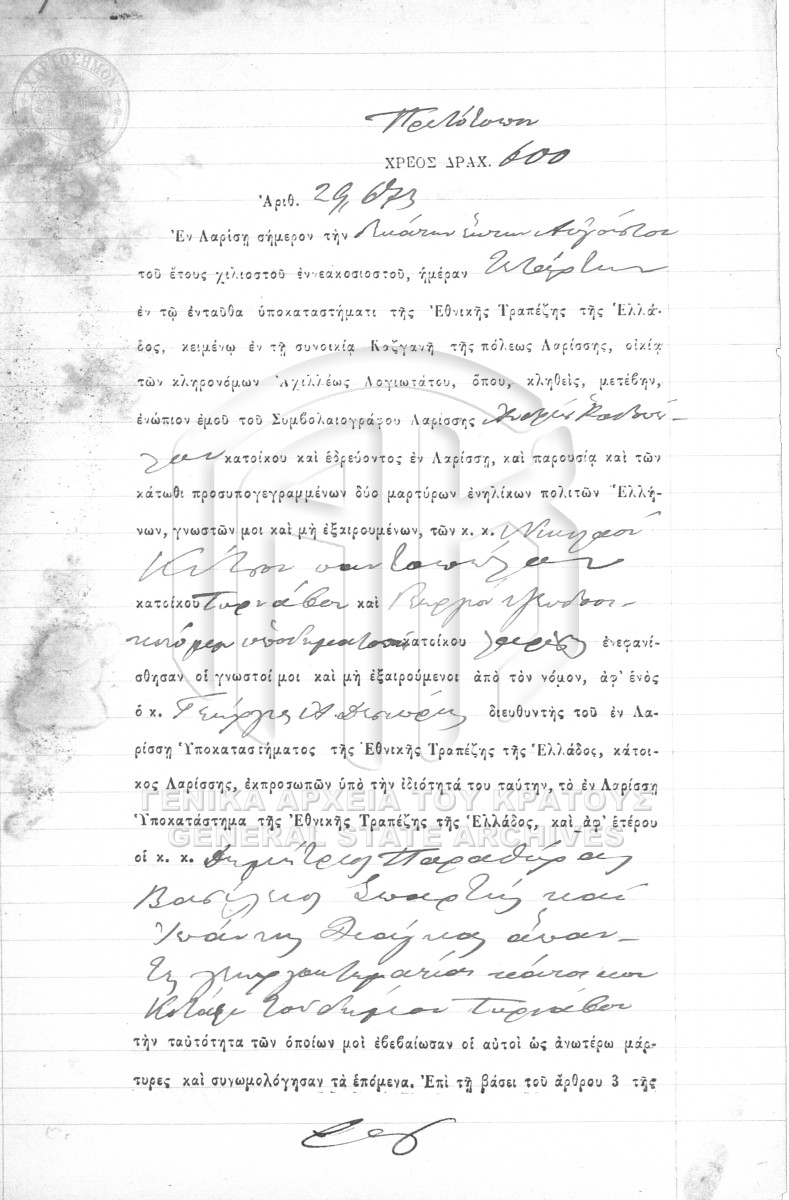 ΧΑΡΤΟΣΗΜΟΥ
Πρωτότυπον
ΧΡΕΟΣ ΔΡΑΧ. 600
Ἀριθ. 29,673
Ἐν Λαρίσῃ σήμερον τὴν Αὐγούστου
τοῦ ἔτους χιλιοστοῦ ἐννεακοσιοστοῦ, ἡμέραν Τετάρτην
ἐν τῷ ἐνταῦθα ὑποκαταστήματι τῆς Ἐθνικῆς Τραπέζης τῆς Ἑλλά-
δος, κειμένῳ ἐν τῇ συνοικίᾳ Καζγανῆ τῆς πόλεως Λαρίσσης, οἰκίᾳ
τῶν κληρονόμων Ἀχιλλέως Λογιωτάτου, ὅπου, κληθεὶς, μετέβην,
ἐνώπιον ἐμοῦ τοῦ Συμβολαιογράφου Λαρίσσης
κατοίκου καὶ ἑδρεύοντος ἐν Λαρίσσῃ, καὶ παρουσίᾳ καὶ τῶν
κάτωθι προσυπογεγραμμένων δύο μαρτύρων ἐνηλίκων πολιτῶν Ἑλλή-
νων, γνωστῶν μοι καὶ μὴ ἐξαιρουμένων, τῶν κ. κ. Νικολάου
παντοπώλου
κατοίκου Τυρνάβου καὶ
κατοίκου Λαρίσης ἐνεφανί-
σθησαν οἱ γνωστοί μοι καὶ μὴ ἐξαιρούμενοι ἀπὸ τὸν νόμον, ἀφ' ἑνὸς
ὁ κ. Γεώργιος διευθυντὴς τοῦ ἐν Λα-
ρίσσῃ Ὑποκαταστήματος τῆς Ἐθνικῆς Τραπέζης τῆς Ἑλλάδος, κάτοι-
κος Λαρίσσης, ἐκπροσωπῶν ὑπὸ τὴν ἰδιότητά του ταύτην, τὸ ἐν Λαρίσσῃ
ΓΕΝΙΚΑ ΑΡΧΕΙΑ ΤΟΥ ΚΡΑΤΟΥΣ
Ὑποκατάστημα τῆς Ἐθνικῆς Τραπέζης τῆς Ἑλλάδος, καὶ ἀφ' ἑτέρου
GENERAL STATE ARCHIVES
οἱ κ. κ. Δημήτριος Παραθύρας
Βασίλειος Σπαρτῆς καὶ
Ἰωάννης ἅπαν-
τες κάτοικοι
τοῦ δήμου Τυρνάβου
τὴν ταὐτότητα τῶν ὁποίων μοὶ ἐβεβαίωσαν οἱ αὐτοὶ ὡς ἀνωτέρω μάρ-
τυρες καὶ συνωμολόγησαν τὰ ἑπόμενα. Ἐπὶ τῇ βάσει τοῦ ἄρθρου 3 τῆς